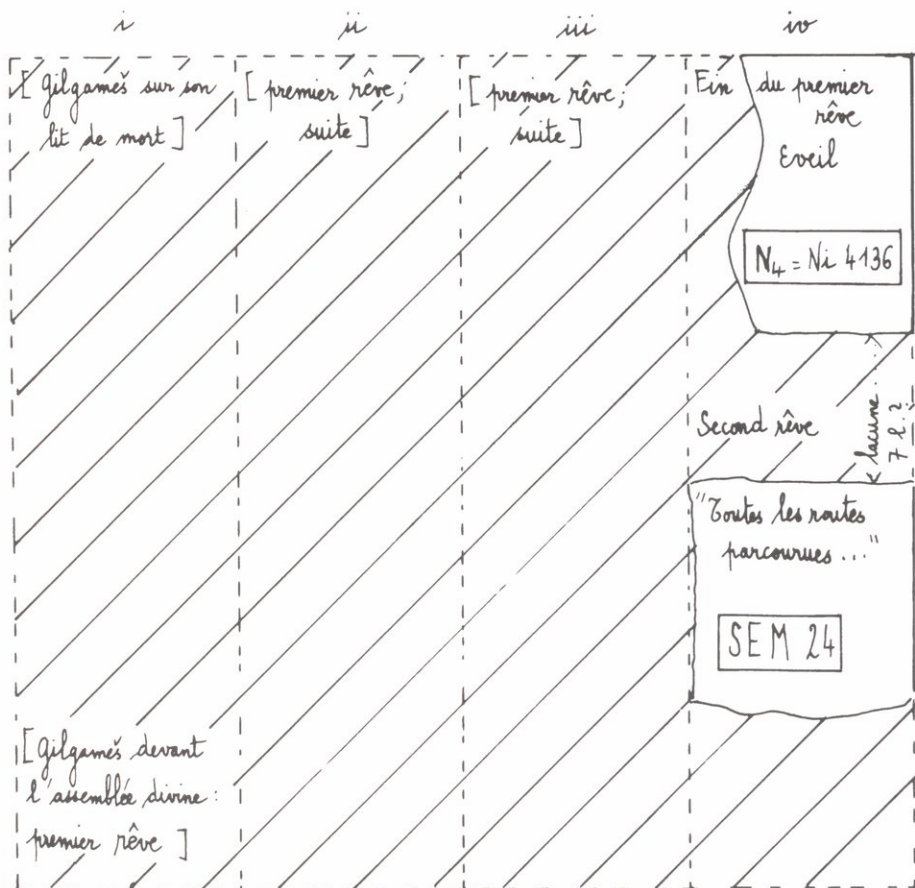 i
ii
iii
iv
[ Gilgameš sur son
lit de mort ]
[ premier rêve ;
suite ]
[ premier rêve ;
suite ]
Ein du premier
rêve
Eveil
N₄ = Ni 4136
lacune
7 l. ?
Second rêve
"Toutes les routes
parcourues ..."
SEM 24
[ Gilgameš devant
l'assemblée divine :
premier rêve ]